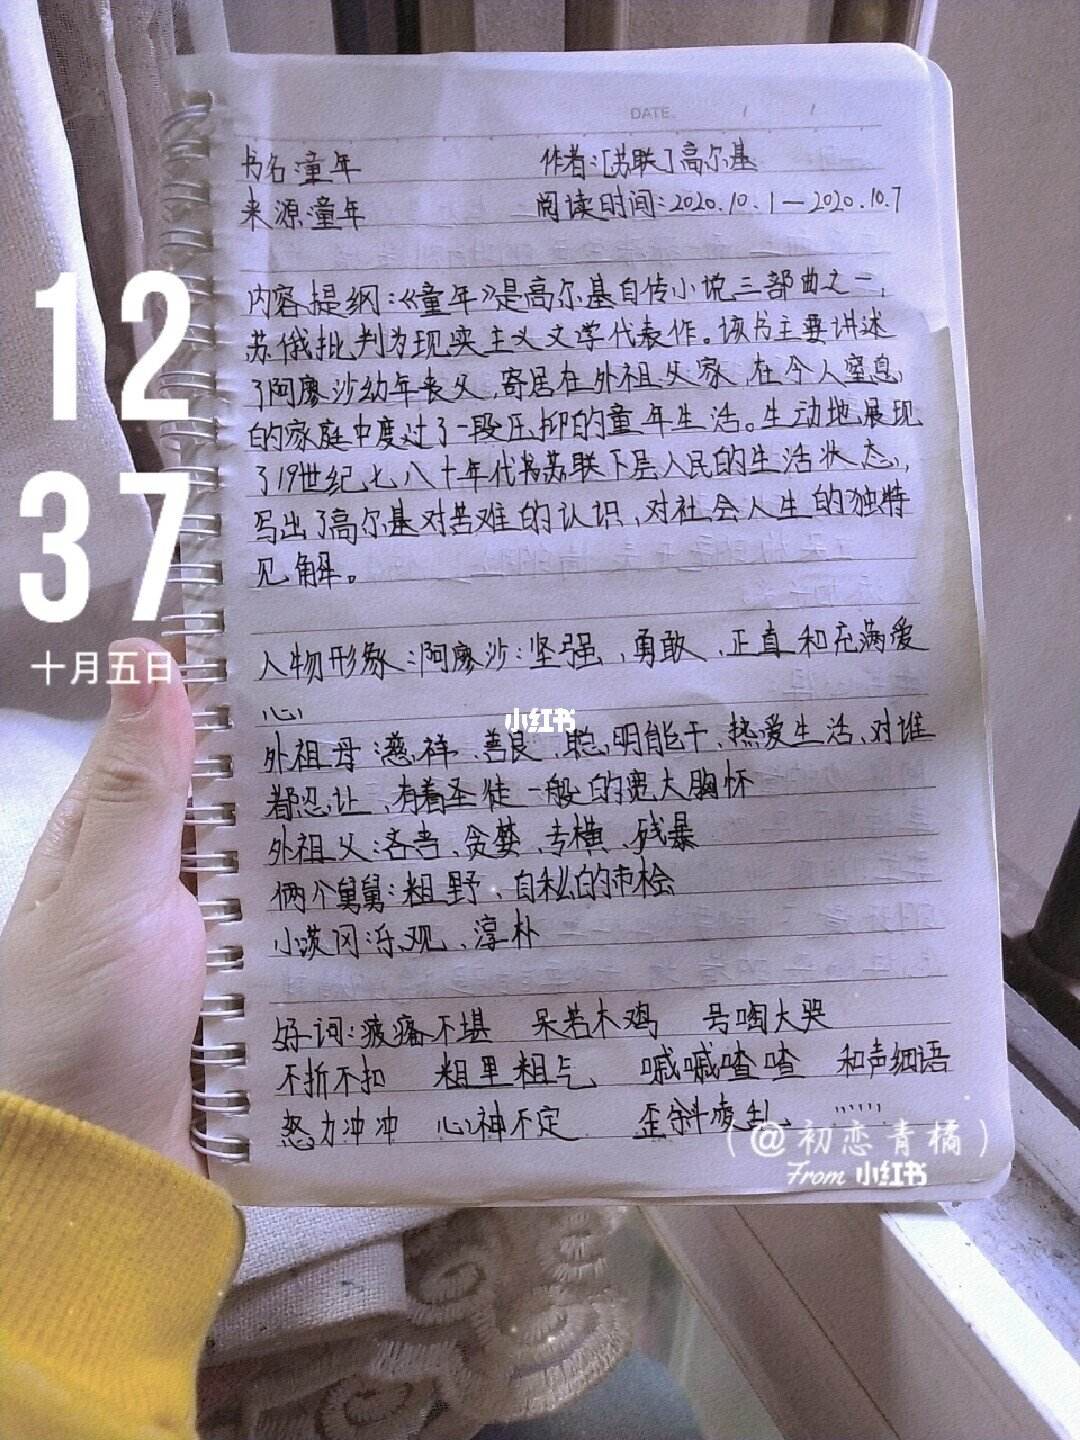 DATE. / /
书名:童年 作者:[苏联]高尔基
来源:童年 阅读时间:2020.10.1—2020.10.7
内容提纲:《童年》是高尔基自传小说三部曲之一,
苏俄批判为现实主义文学代表作。该书主要讲述
了阿廖沙幼年丧父,寄居在外祖父家,在令人窒息
的家庭中度过了一段压抑的童年生活。生动地展现
了19世纪七八十年代苏联下层人民的生活状态,
写出了高尔基对苦难的认识,对社会人生的独特
见解。
人物形象:阿廖沙:坚强、勇敢、正直和充满爱
心
外祖母:慈祥、善良、聪明能干、热爱生活、对谁
都忍让、有着圣徒一般的宽大胸怀
外祖父:吝啬、贪婪、专横、残暴
俩个舅舅:粗野、自私的市桧
小茨冈:乐观、淳朴
好词:疲痛不堪 呆若木鸡 号啕大哭
不折不扣 粗里粗气 嘁嘁喳喳 和声细语
怒力冲冲 心神不定 歪斜凌乱 ······
12
37
十月五日
小红书
(@初恋青橘)
From 小红书